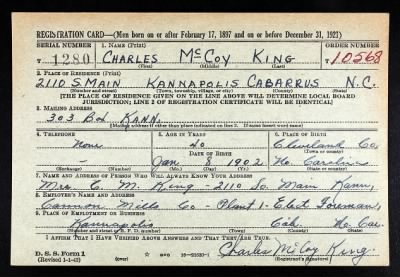 REGISTRATION CARD—(Men born on or after February 17, 1897 and on or before December 31, 1921)
SERIAL NUMBER 1. NAME (Print) ORDER NUMBER
T 1280 CHARLES McCOY KING 10568
(First) (Middle) (Last)
2. PLACE OF RESIDENCE (Print)
2110 S. MAIN KANNAPOLIS CABARRUS N.C.
(Number and street) (Town, township, village, or city) (County) (State)
[THE PLACE OF RESIDENCE GIVEN ON THE LINE ABOVE WILL DETERMINE LOCAL BOARD
JURISDICTION; LINE 2 OF REGISTRATION CERTIFICATE WILL BE IDENTICAL]
3. MAILING ADDRESS
303 Box KANN.
[Mailing address if other than place indicated on line 2. If same insert word same]
4. TELEPHONE 5. AGE IN YEARS 6. PLACE OF BIRTH
None 40 Cleveland Co,
DATE OF BIRTH (Town or county)
Jan 8 1902 No. Carolina
(Exchange) (Number) (Mo.) (Day) (Yr.) (State or country)
7. NAME AND ADDRESS OF PERSON WHO WILL ALWAYS KNOW YOUR ADDRESS
Mrs C. M. King - 2110 So. Main Kann,
8. EMPLOYER'S NAME AND ADDRESS
Cannon Mills Co - Plant 1 - Elect Foreman,
9. PLACE OF EMPLOYMENT OR BUSINESS
Kannapolis Cab. No. Car.
(Number and street or R. F. D. number) (Town) (County) (State)
I AFFIRM THAT I HAVE VERIFIED ABOVE ANSWERS AND THAT THEY ARE TRUE.
D. S. S. Form 1
(Revised 1-1-42) (over) 16—21630-1 Charles McCoy King
(Registrant's signature)